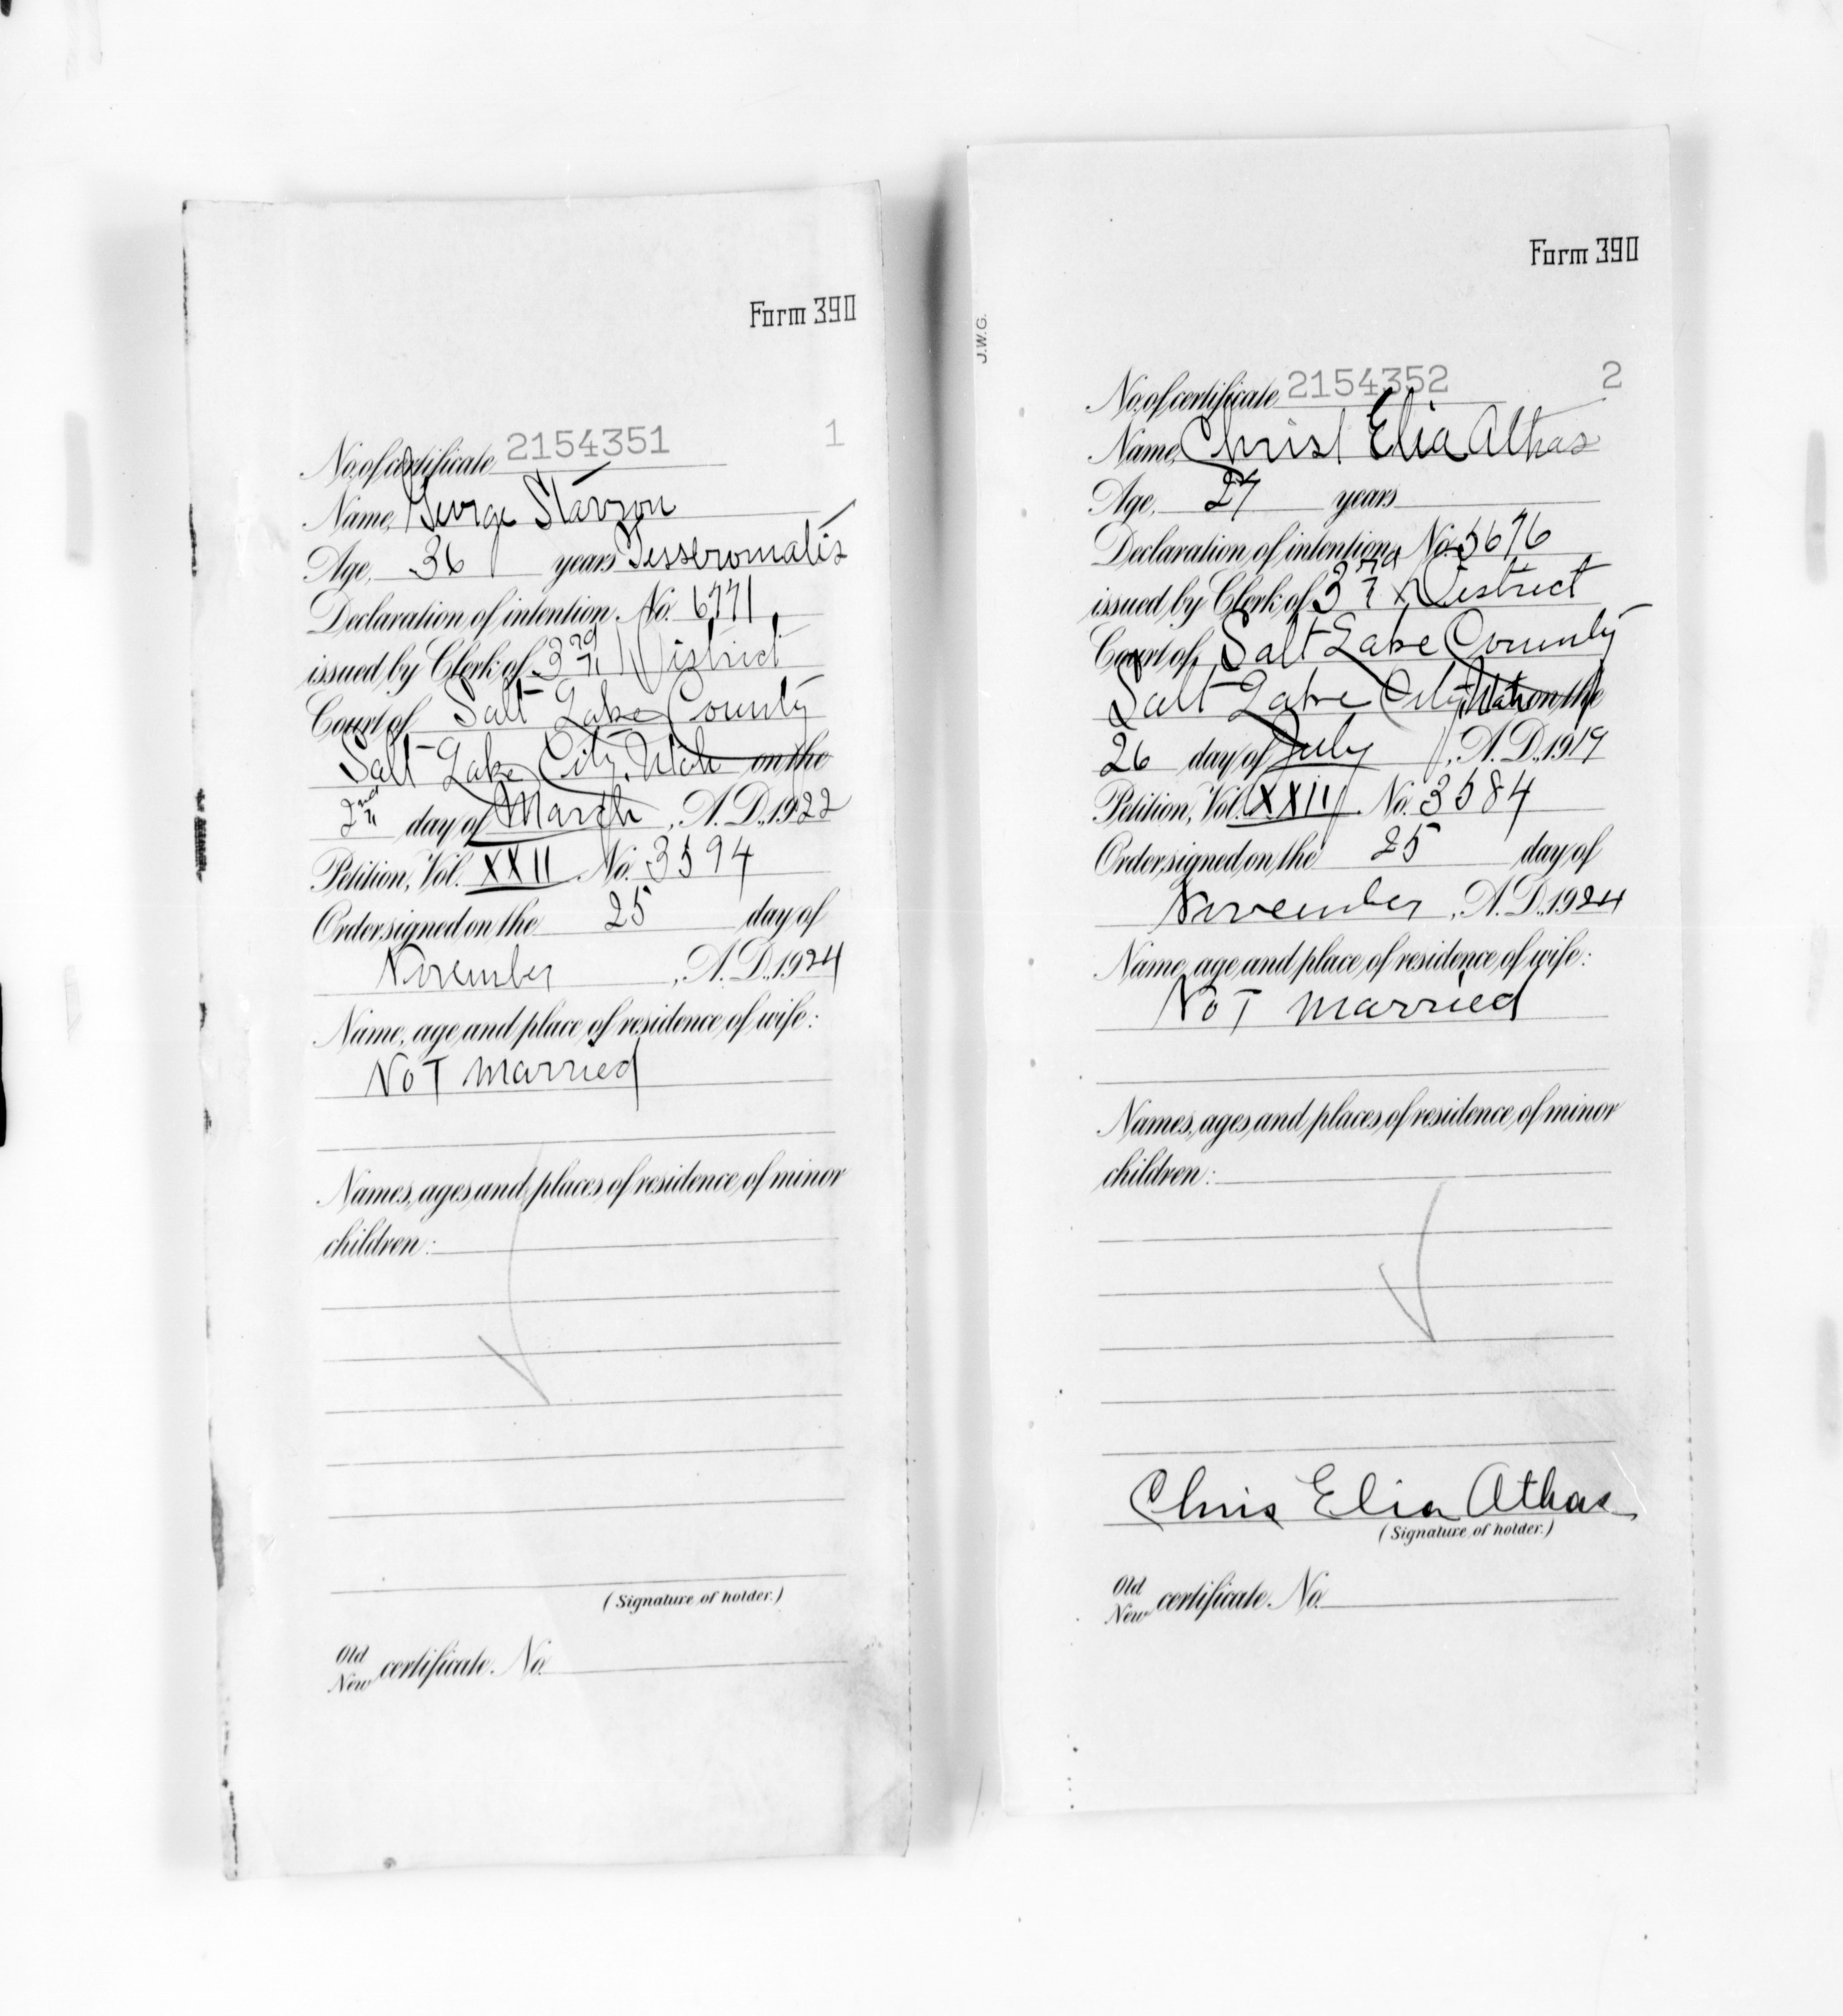 Form 390
No. of certificate 2154351 1
Name, George Stavron
Age, 36 years Tesseromatis
Declaration of intention, No. 6771
issued by Clerk of 3rd District
Court of Salt Lake County
Salt Lake City, Utah on the
2nd day of March, A.D., 1922
Petition, Vol. XXII No. 3594
Order signed on the 25 day of
November, A.D., 1924
Name, age and place of residence of wife:
Not married
Names, ages and places of residence of minor
children:
(Signature of holder.)
Old
New certificate. No.
Form 390
J.W.G.
No. of certificate 2154352 2
Name, Christ Elia Athas
Age, 27 years
Declaration of intention, No. 5676
issued by Clerk of 3rd District
Court of Salt Lake County
Salt Lake City, Utah on the
26 day of July, A.D., 1919
Petition, Vol. XXII No. 3584
Order signed on the 25 day of
November, A.D., 1924
Name, age and place of residence of wife:
Not married
Names, ages and places of residence of minor
children:
Chris Elia Athas
(Signature of holder.)
Old
New certificate. No.